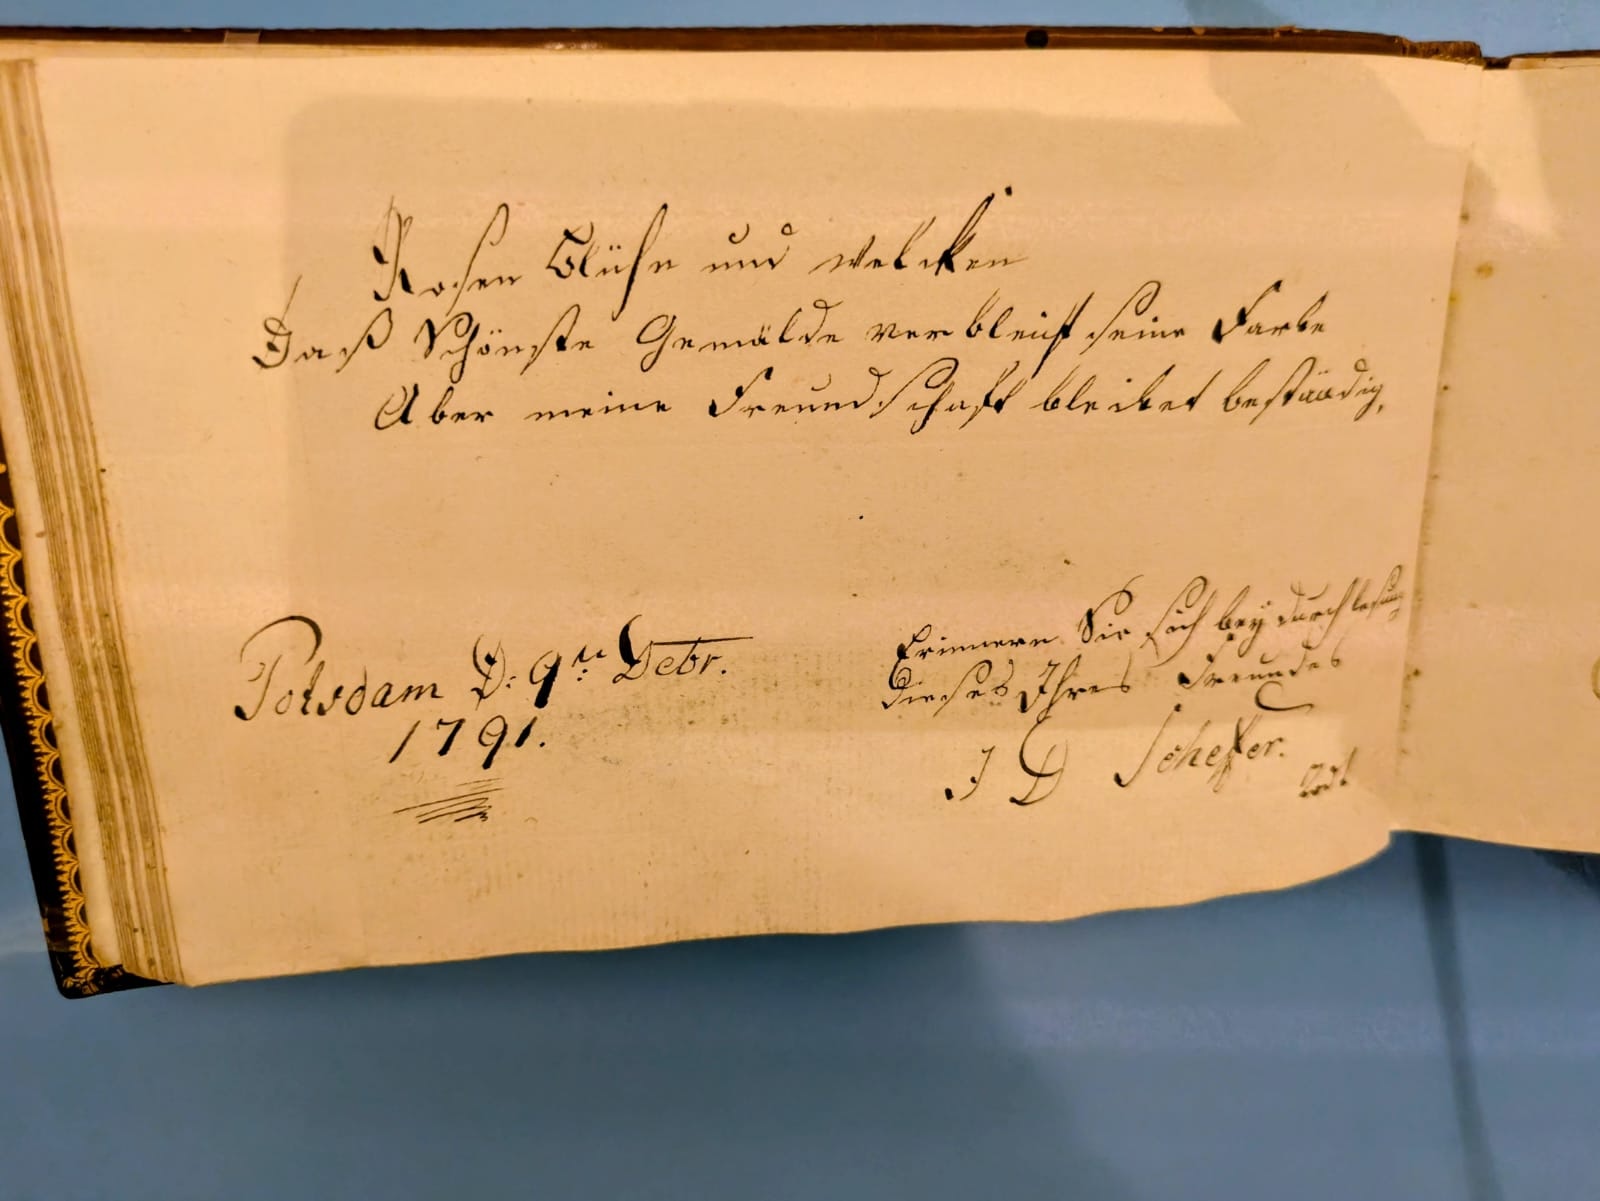 Rosen blühn und welcken
Daß Schönste Gemälde verbleicht seine Farbe
Aber meine Freundschaft bleibet beständig,
Potsdam D: 9ten Debr.
1791.
Erinnern Sie sich bey durchlesung
dieses Ihres Freundes
J D Scheffer.